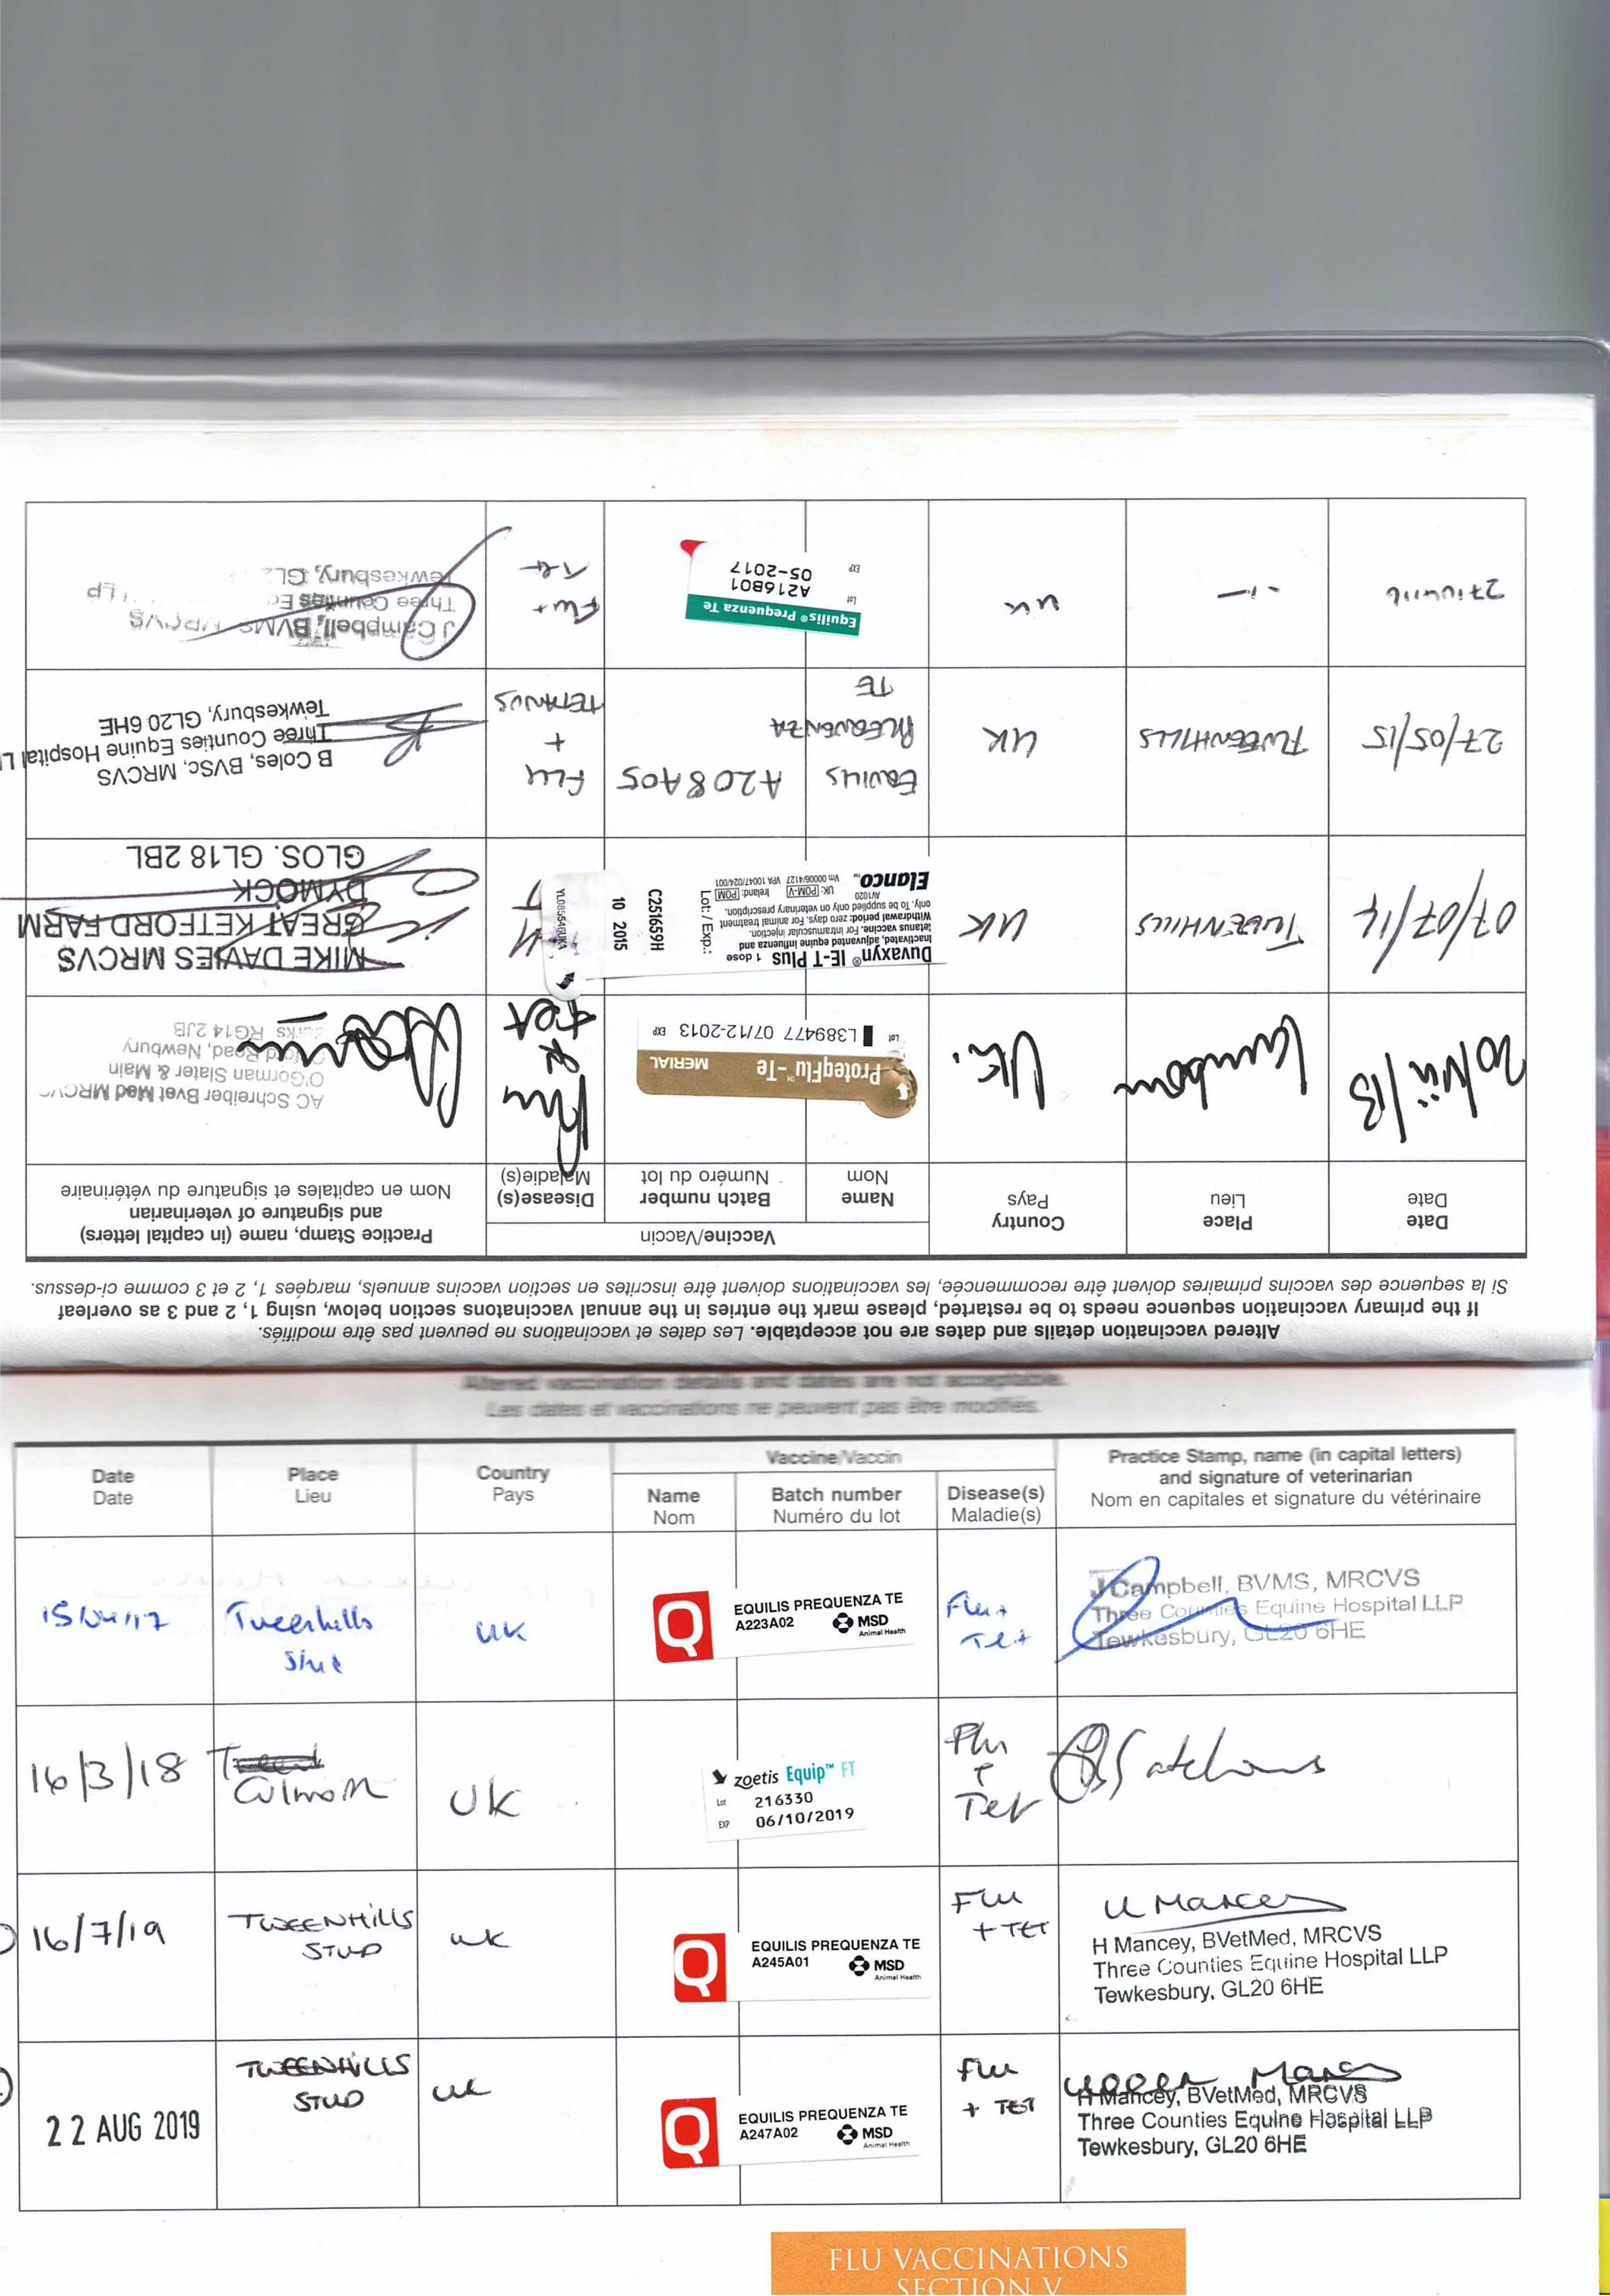 Altered vaccination details and dates are not acceptable. Les dates et vaccinations ne peuvent pas être modifiés.
If the primary vaccination sequence needs to be restarted, please mark the entries in the annual vaccinatons section below, using 1, 2 and 3 as overleaf
Si la sequence des vaccins primaires doivent être recommencée, les vaccinations doivent être inscrites en section vaccins annuels, marqées 1, 2 et 3 comme ci-dessus.
Date
Date
Place
Lieu
Country
Pays
Vaccine/Vaccin
Name
Nom
Batch number
Numéro du lot
Disease(s)
Maladie(s)
Practice Stamp, name (in capital letters)
and signature of veterinarian
Nom en capitales et signature du vétérinaire
Lambourn
UK.
ProteqFlu™-Te MERIAL
Lot L389477 07/12-2013 EXP
Flu
&
tet
AC Schreiber Bvet Med MRCVS
O'Gorman Slater & Main
Road, Newbury
RG14 2JB
07/07/14
TWEENHILLS
UK
Duvaxyn® IE-T Plus 1 dose
Inactivated, adjuvanted equine influenza and
tetanus vaccine. For intramuscular injection.
Withdrawal period: zero days. For animal treatment
only. To be supplied only on veterinary prescription.
AV1020 UK: POM-V Ireland: POM
Elanco™ Vm 00006/4127 VPA 10047/024/001
Lot: / Exp.:
C251659H
10 2015
MIKE DAVIES MRCVS
GREAT KETFORD FARM
DYMOCK
GLOS. GL18 2BL
27/05/15
TWEENHILLS
UK
EQUILIS
PREQUENZA
TE
A208A05
FLU
+
TETANUS
B Coles, BVSc, MRCVS
Three Counties Equine Hospital
Tewkesbury, GL20 6HE
UK
Equilis® Prequenza Te
Lot A216B01
EXP 05-2017
Flu+
Tet
J Campbell, BVMS MRCVS
Three Counties
Tewkesbury,
Altered vaccination details and dates are not acceptable.
Les dates et vaccinations ne peuvent pas être modifiés.
Date
Date
Place
Lieu
Country
Pays
Vaccine/Vaccin
Name
Nom
Batch number
Numéro du lot
Disease(s)
Maladie(s)
Practice Stamp, name (in capital letters)
and signature of veterinarian
Nom en capitales et signature du vétérinaire
Tweenhills
Stud
UK
Q
EQUILIS PREQUENZA TE
A223A02 MSD
Animal Health
Flu+
Tet
J Campbell, BVMS, MRCVS
Three Counties Equine Hospital LLP
Tewkesbury, GL20 6HE
16/3/18
UK
zoetis Equip™ FT
Lot 216330
EXP 06/10/2019
Flu
+
Tet
16/7/19
TWEENHILLS
STUD
UK
Q
EQUILIS PREQUENZA TE
A245A01 MSD
Animal Health
FLU
+ TET
H Mancey
H Mancey, BVetMed, MRCVS
Three Counties Equine Hospital LLP
Tewkesbury, GL20 6HE
22 AUG 2019
TWEENHILLS
STUD
UK
Q
EQUILIS PREQUENZA TE
A247A02 MSD
Animal Health
FLU
+ TET
H Mancey, BVetMed, MRCVS
Three Counties Equine Hospital LLP
Tewkesbury, GL20 6HE
FLU VACCINATIONS
SECTION V